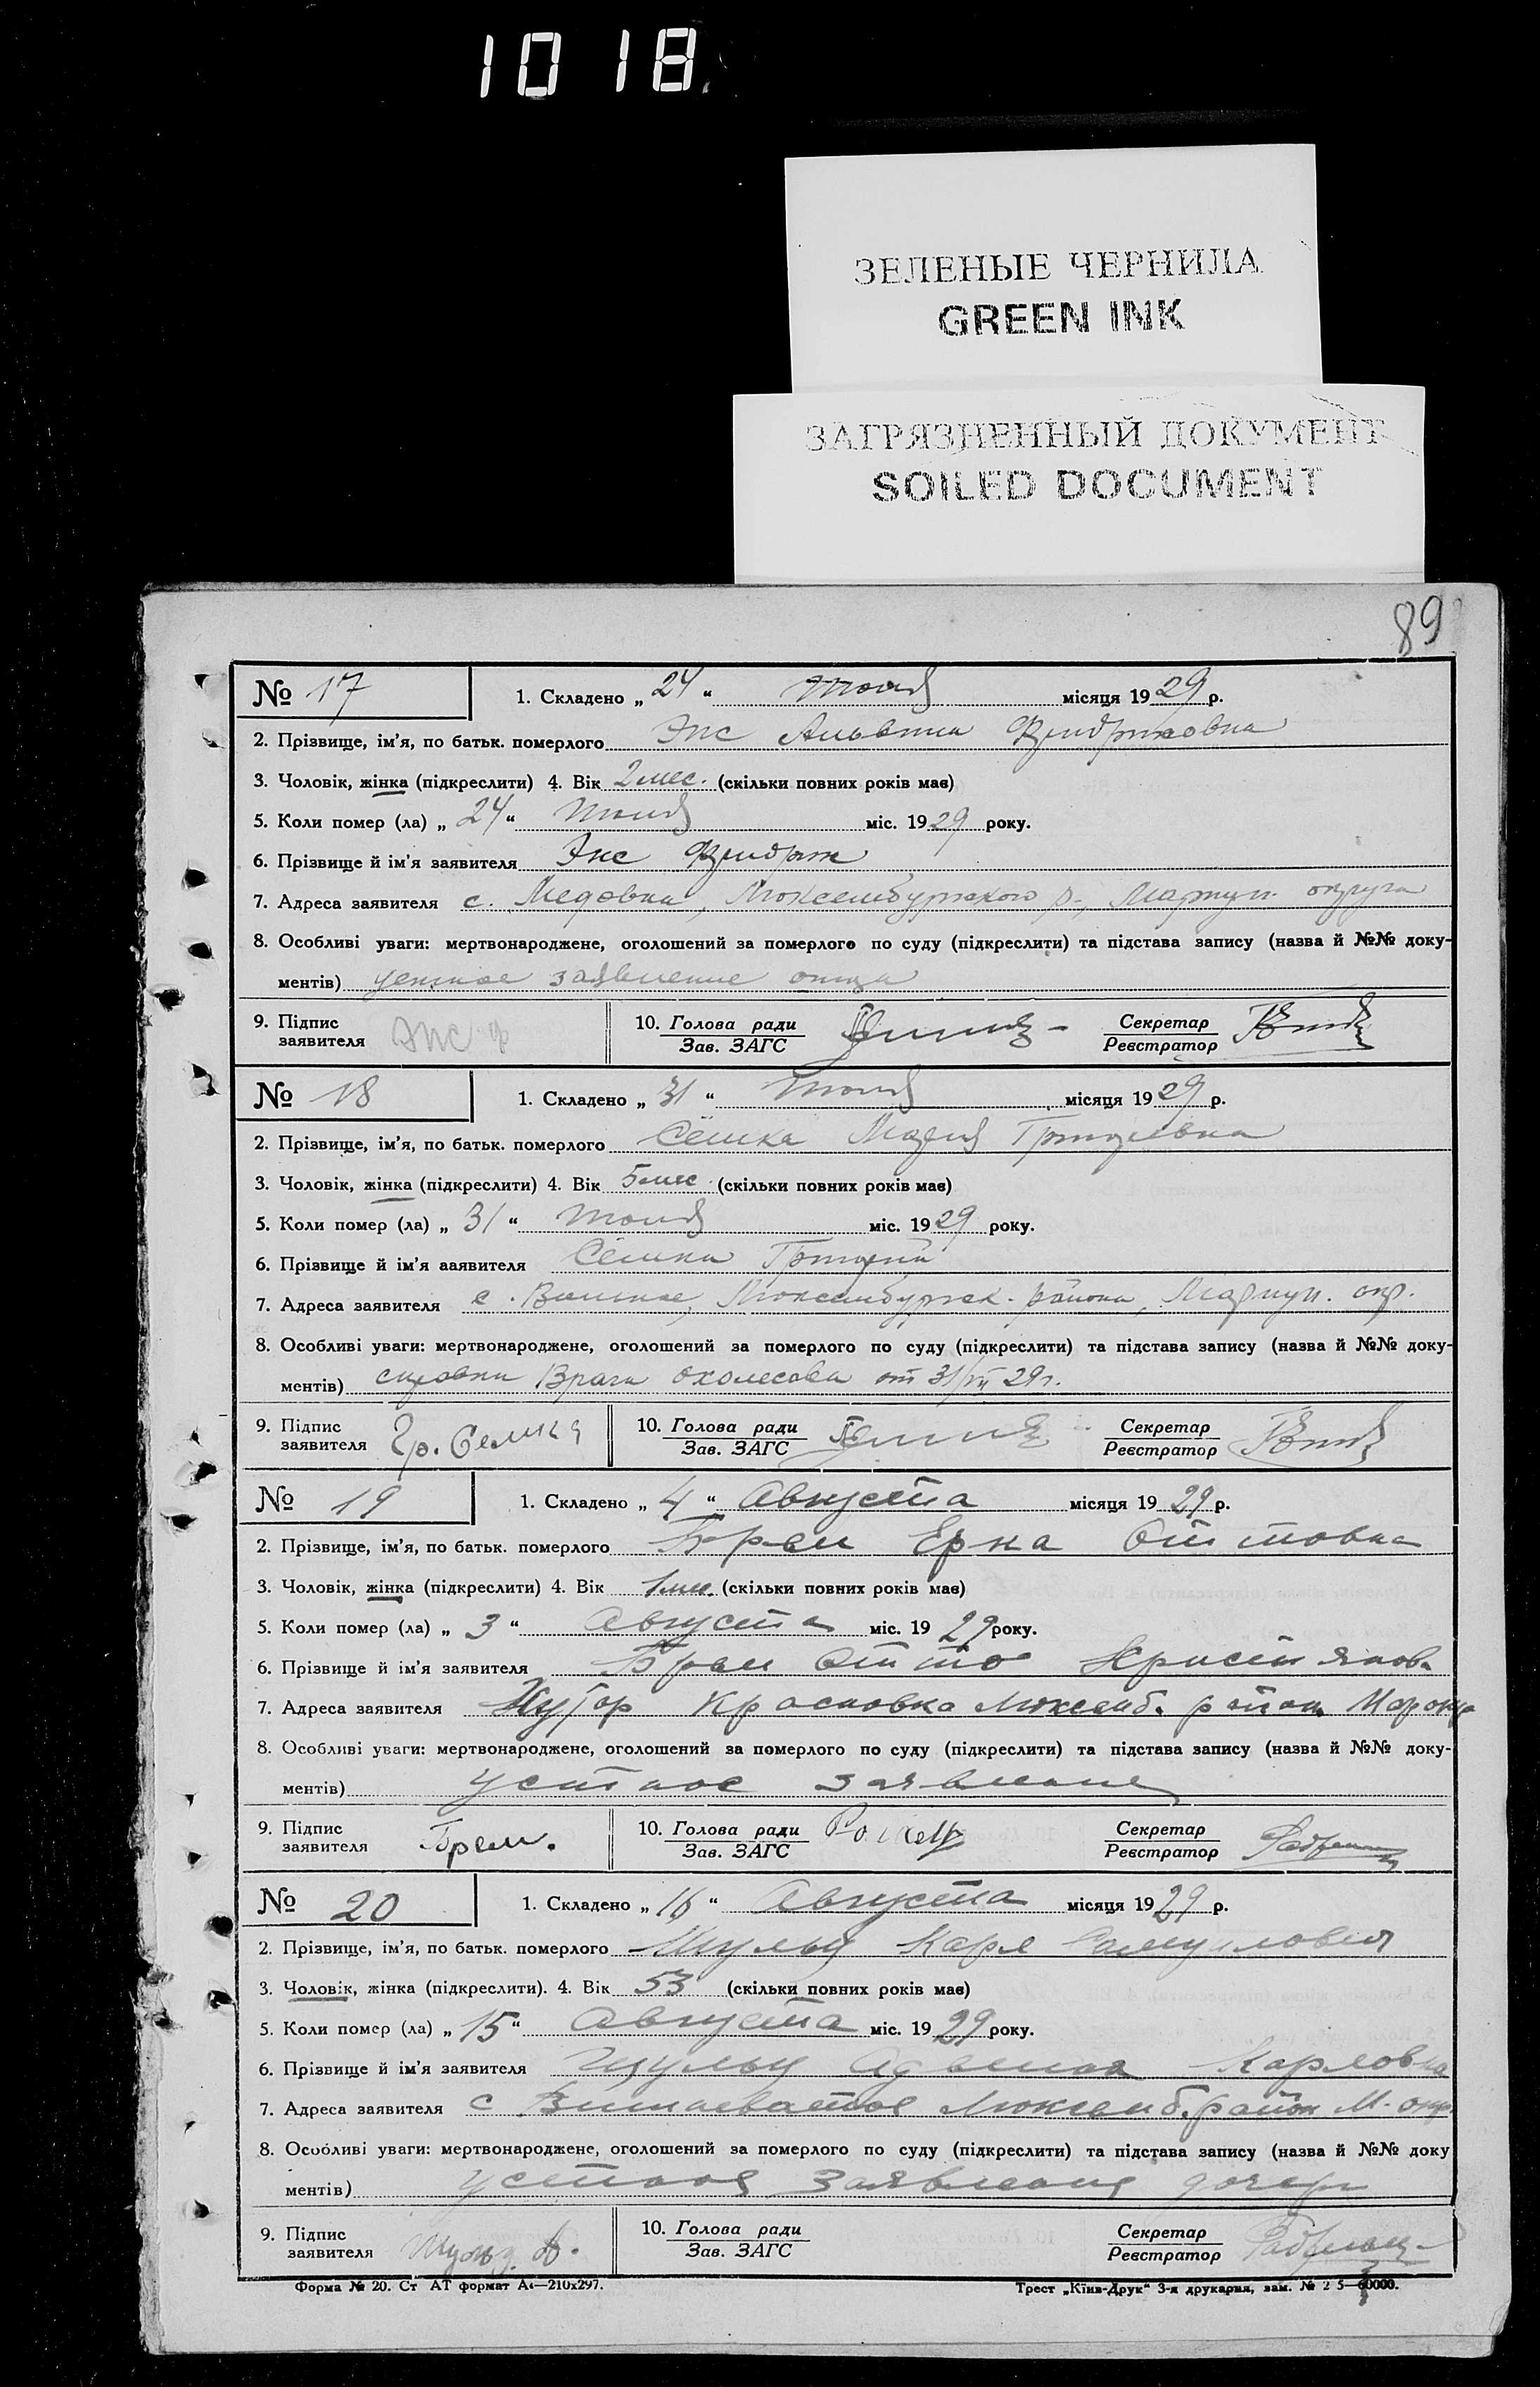 1018
ЗЕЛЕНЫЕ ЧЕРНИЛА
GREEN INK
ЗАГРЯЗНЕННЫЙ ДОКУМЕНТ
SOILED DOCUMENT
89
№ 17 1. Складено „ 24 “ июля місяця 1929 р.
2. Прізвище, ім'я, по батьк. померлого Эпс Альвина Фридриховна
3. Чоловік, жінка (підкреслити) 4. Вік 2 мес. (скільки повних років має)
5. Коли помер (ла) „ 24 “ июля міс. 1929 року.
6. Прізвище й ім'я заявителя Эпс Фридрих
7. Адреса заявителя с. Медовка, Люксембургского р., Мариуп. округа
8. Особливі уваги: мертвонароджене, оголошений за померлого по суду (підкреслити) та підстава запису (назва й №№ доку-
ментів) устное заявление отца
9. Підпис заявителя Эпс Ф 10. Голова ради Зав. ЗАГС Секретар Реєстратор
№ 18 1. Складено „ 31 “ июля місяця 1929 р.
2. Прізвище, ім'я, по батьк. померлого Сёмка Мария Григорьевна
3. Чоловік, жінка (підкреслити) 4. Вік 5 мес. (скільки повних років має)
5. Коли помер (ла) „ 31 “ июля міс. 1929 року.
6. Прізвище й ім'я заявителя Сёмка Григорий
7. Адреса заявителя с. Люксембургск. района, Мариуп. окр.
8. Особливі уваги: мертвонароджене, оголошений за померлого по суду (підкреслити) та підстава запису (назва й №№ доку-
ментів) справка Врача от 31/VII 29 г.
9. Підпис заявителя Гр. Семка 10. Голова ради Зав. ЗАГС Секретар Реєстратор
№ 19 1. Складено „ 4 “ Августа місяця 1929 р.
2. Прізвище, ім'я, по батьк. померлого Ерна Оттовна
3. Чоловік, жінка (підкреслити) 4. Вік 1 мес. (скільки повних років має)
5. Коли помер (ла) „ 3 “ Августа міс. 1929 року.
6. Прізвище й ім'я заявителя Отто
7. Адреса заявителя Хутор Красновка Люксемб. район Мар окр
8. Особливі уваги: мертвонароджене, оголошений за померлого по суду (підкреслити) та підстава запису (назва й №№ доку-
ментів) устное заявление
9. Підпис заявителя 10. Голова ради Зав. ЗАГС Секретар Реєстратор
№ 20 1. Складено „ 16 “ Августа місяця 1929 р.
2. Прізвище, ім'я, по батьк. померлого Шульц Карл
3. Чоловік, жінка (підкреслити). 4. Вік 53 (скільки повних років має)
5. Коли помер (ла) „ 15 “ Августа міс. 1929 року.
6. Прізвище й ім'я заявителя Шульц Карловна
7. Адреса заявителя с Вишневатое Люксемб. район М. окр
8. Особливі уваги: мертвонароджене, оголошений за померлого по суду (підкреслити) та підстава запису (назва й №№ доку
ментів) устное заявление дочери
9. Підпис заявителя Шульц А. 10. Голова ради Зав. ЗАГС Секретар Реєстратор
Форма № 20. Ст АТ формат А4—210х297. Трест „Київ-Друк“ 3-я друкарня, зам. № 2 5—60000.